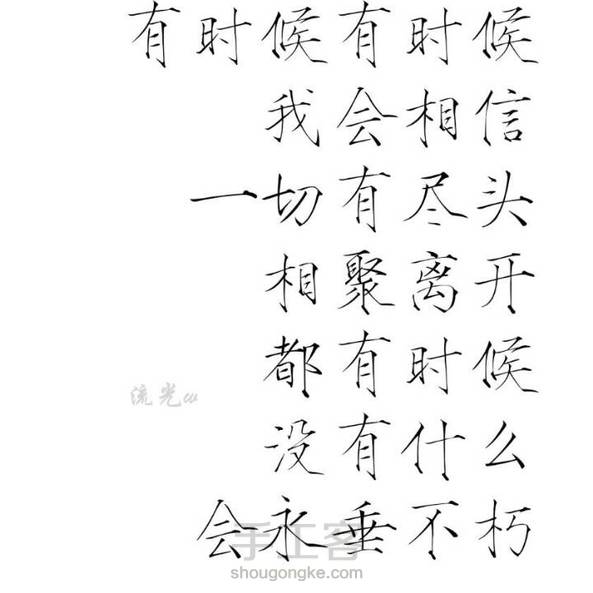 有时候有时候
我会相信
一切有尽头
相聚离开
都有时候
没有什么
会永垂不朽
流光ω
手工客
shougongke.com